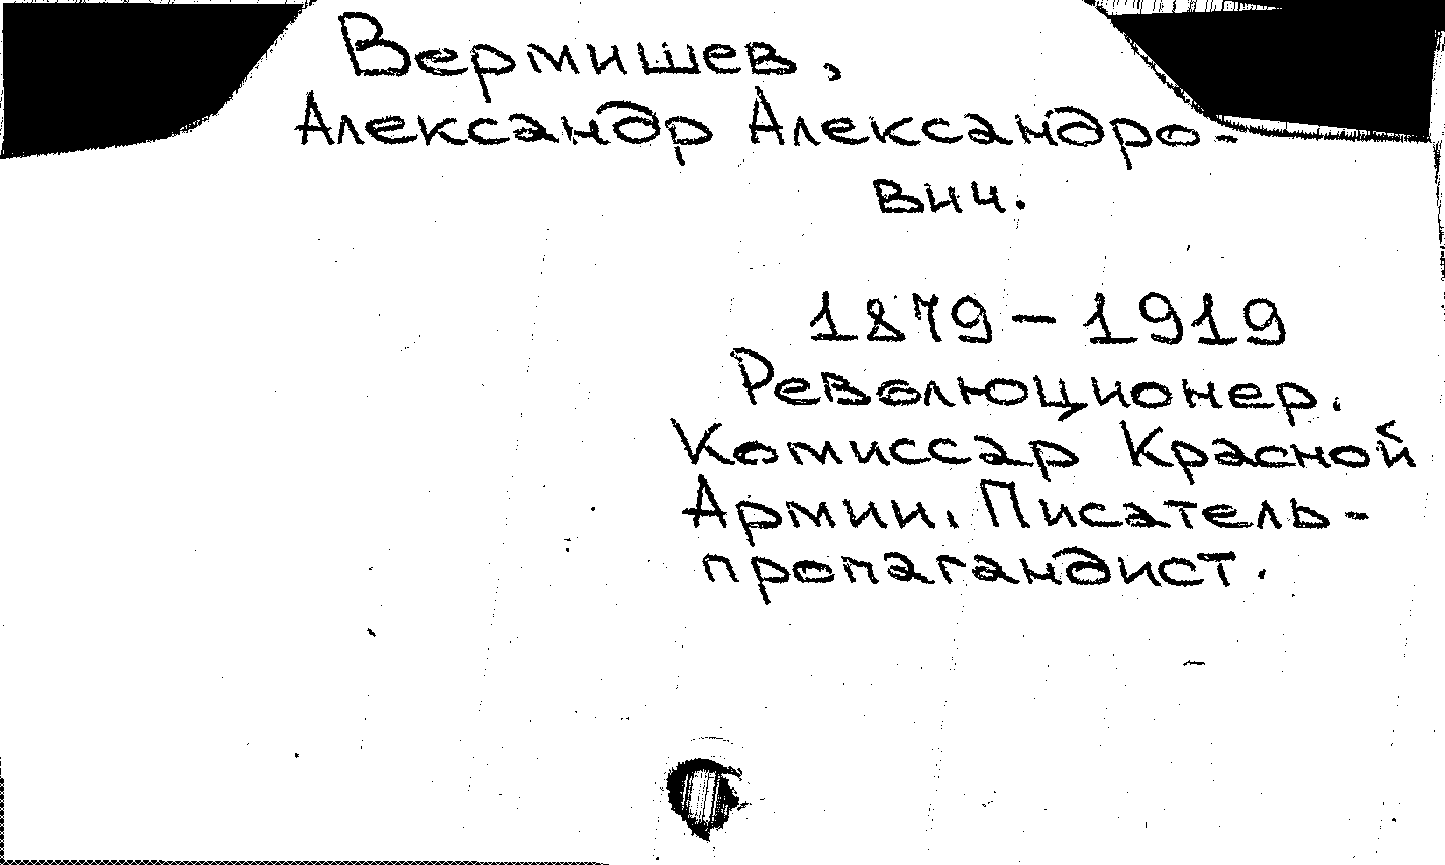 Вермишев,
Александр Александро-
вич.
1879-1919
Революционер.
Комиссар Красной
Армии. Писатель-
пропагандист.